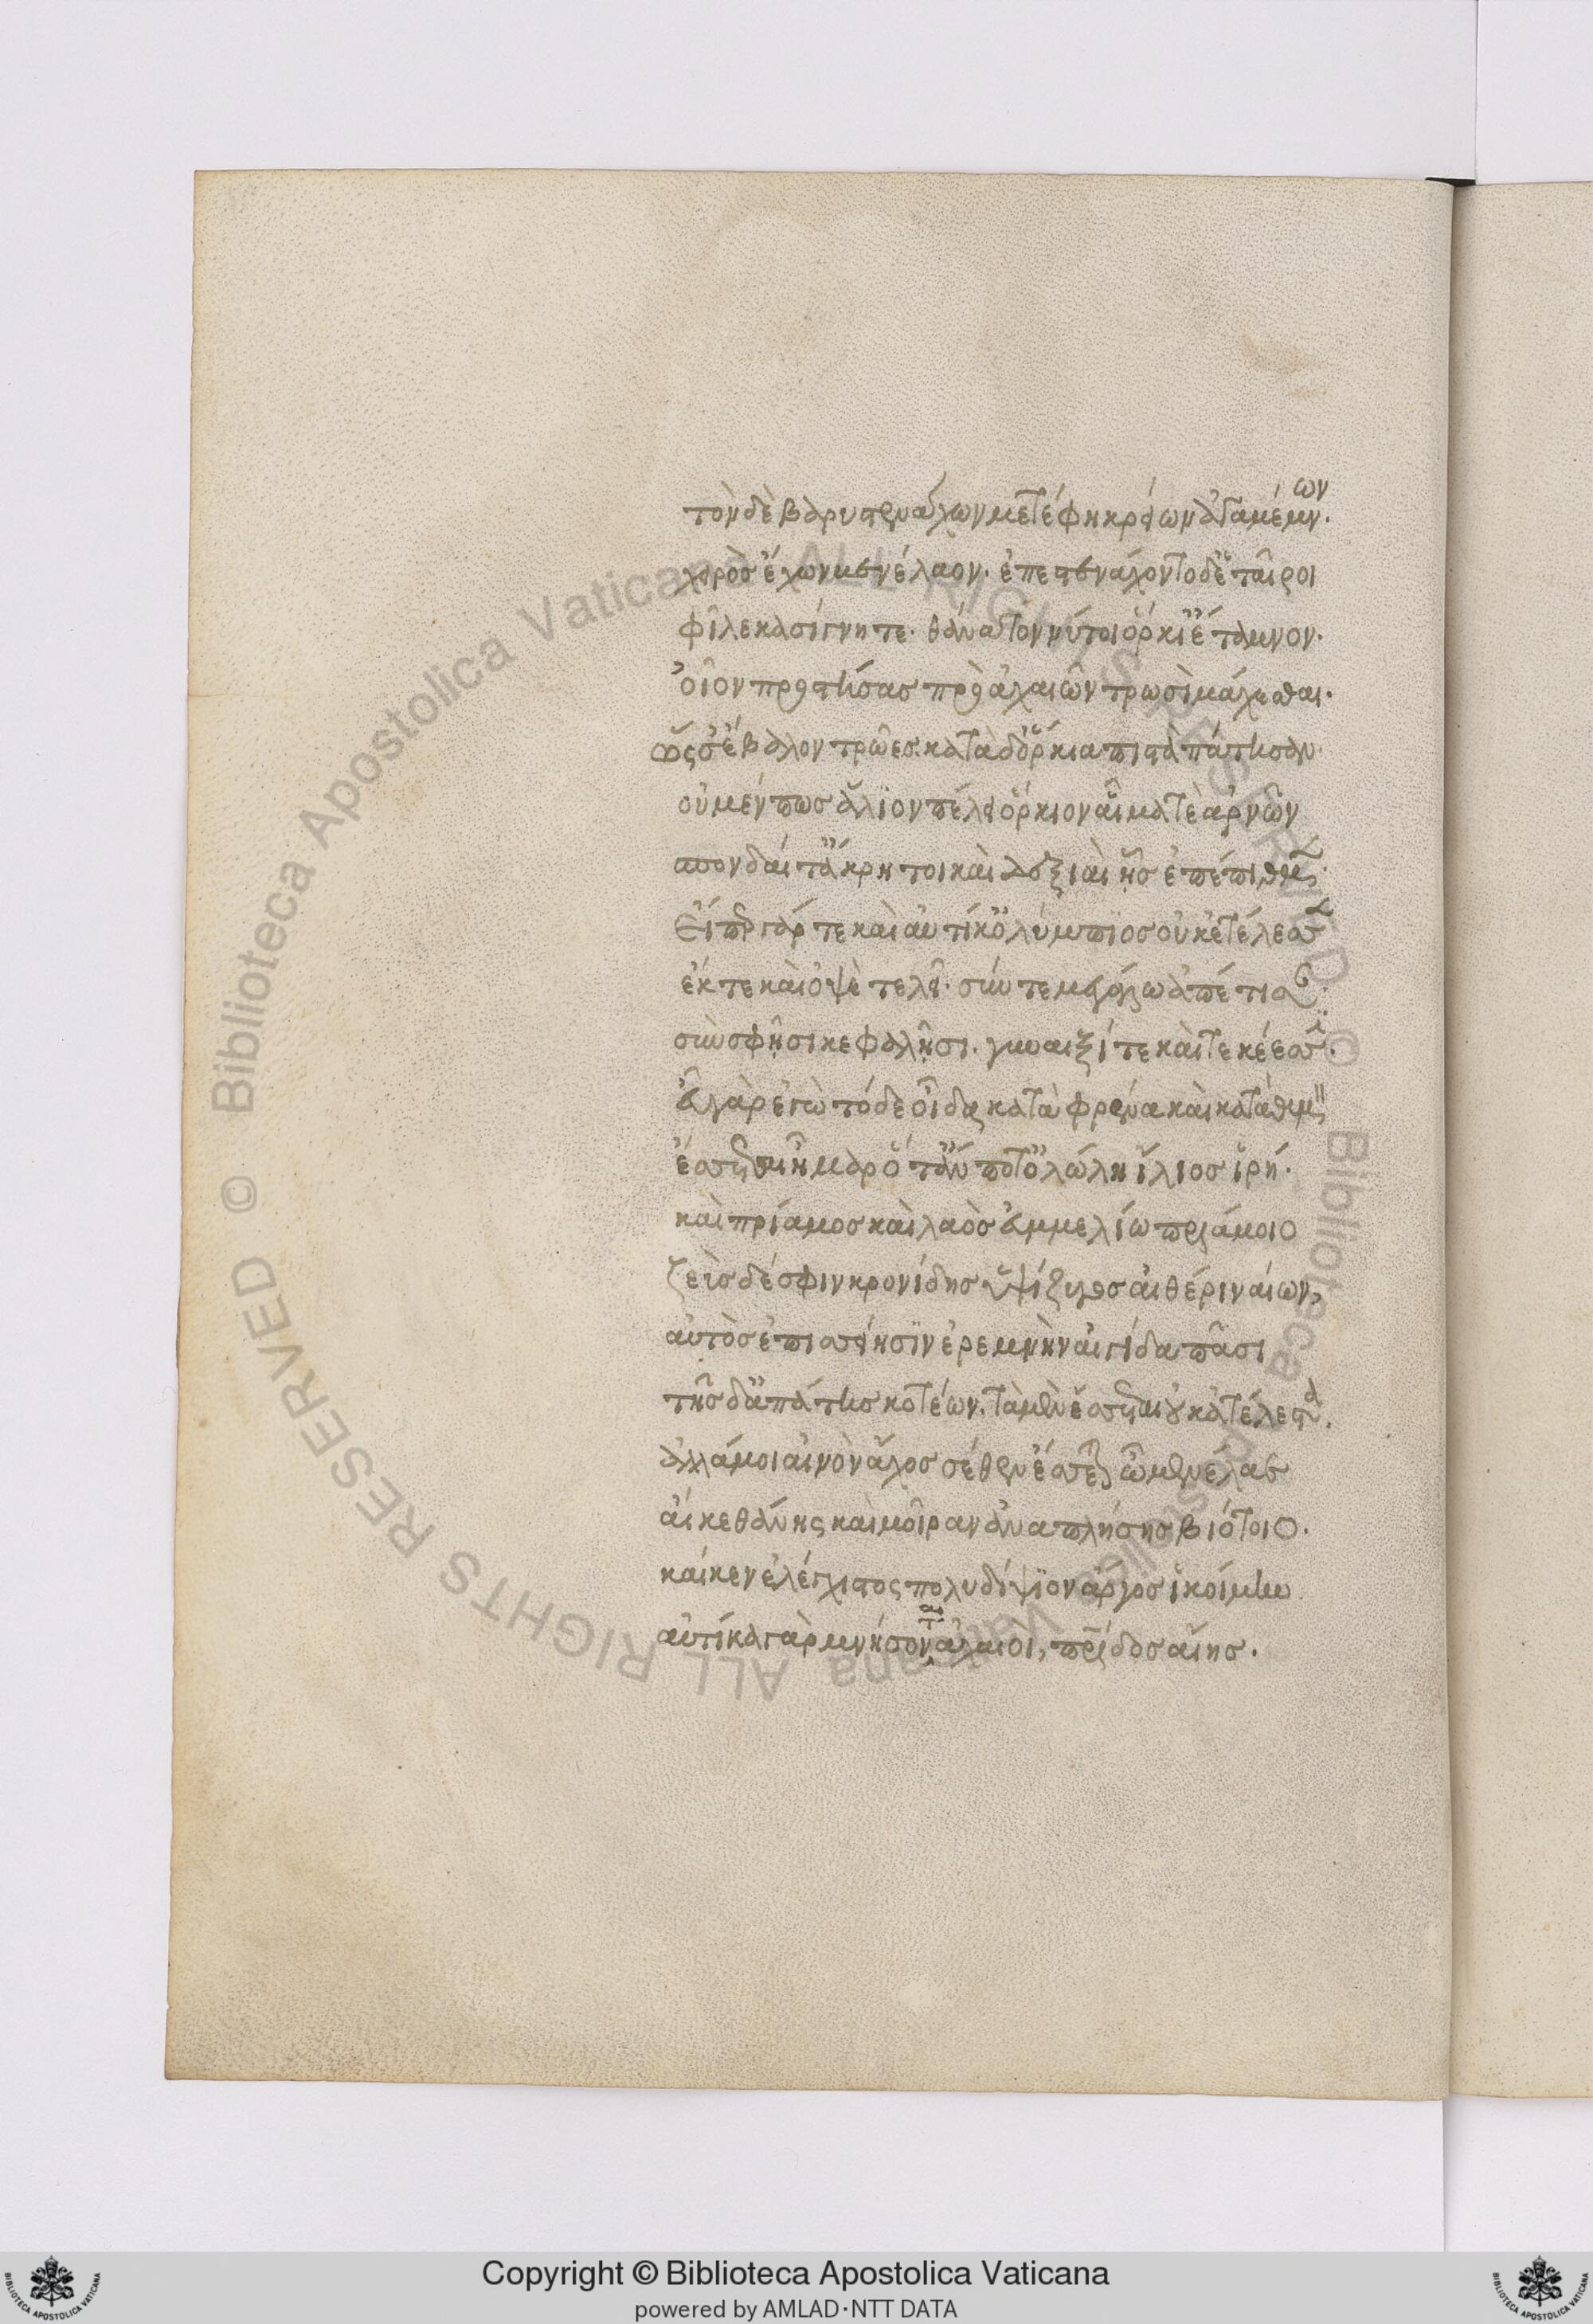 τὸν δὲ βαρυστενάχων μετέφη κρείων ἀγαμέμνων.
χειρὸς ἔχων μενέλαον. ἐπεστενάχοντο δ' ἑταῖροι
φίλε κασίγνητε. θάνατον νύ τοι ὅρκι' ἔταμνον.
οἶον προστήσας πρὸ ἀχαιῶν τρωσὶ μάχεσθαι.
ὥς σ' ἔβαλον τρῶες. κατὰ δ' ὅρκια πιστὰ πάτησαν.
οὐ μέν πως ἅλιον πέλει ὅρκιον αἷμά τε ἀρνῶν
σπονδαί τ' ἄκρητοι καὶ δεξιαὶ ᾗς ἐπέπιθμεν.
εἴπερ γάρ τε καὶ αὐτίκ' ὀλύμπιος οὐκ ἐτέλεσσεν
ἔκ τε καὶ ὀψὲ τελεῖ. σύν τε μεγάλω ἀπέτισαν.
σὺν σφῇσι κεφαλῇσι. γυναιξί τε καὶ τεκέεσσιν.
εὖ γὰρ ἐγὼ τόδε οἶδα κατὰ φρένα καὶ κατὰ θυμὸν
ἔσσεται ἦμαρ ὅτ' ἄν ποτ' ὀλώλῃ ἴλιος ἱρή.
καὶ πρίαμος καὶ λαὸς ἐϋμμελίω πριάμοιο
ζεὺς δέ σφιν κρονίδης ὑψίζυγος αἰθέρι ναίων,
αὐτὸς ἐπισσείησιν ἐρεμνὴν αἰγίδα πᾶσι
τῆς δ' ἀπάτης κοτέων. τὰ μὲν ἔσσεται οὐκ ἀτέλεστα.
ἀλλά μοι αἰνὸν ἄχος σέθεν ἔσσεται ὦ μενέλαε
αἴ κε θάνῃς καὶ μοῖραν ἀναπλήσῃς βιότοιο.
καί κεν ἐλέγχιστος πολυδίψιον ἄργος ἱκοίμην
αὐτίκα γὰρ μνήσονται ἀχαιοὶ, πατρίδος αἴης.
Copyright © Biblioteca Apostolica Vaticana
powered by AMLAD·NTT DATA
© Biblioteca Apostolica Vaticana ALL RIGHTS RESERVED © Biblioteca Apostolica Vaticana ALL RIGHTS RESERVED